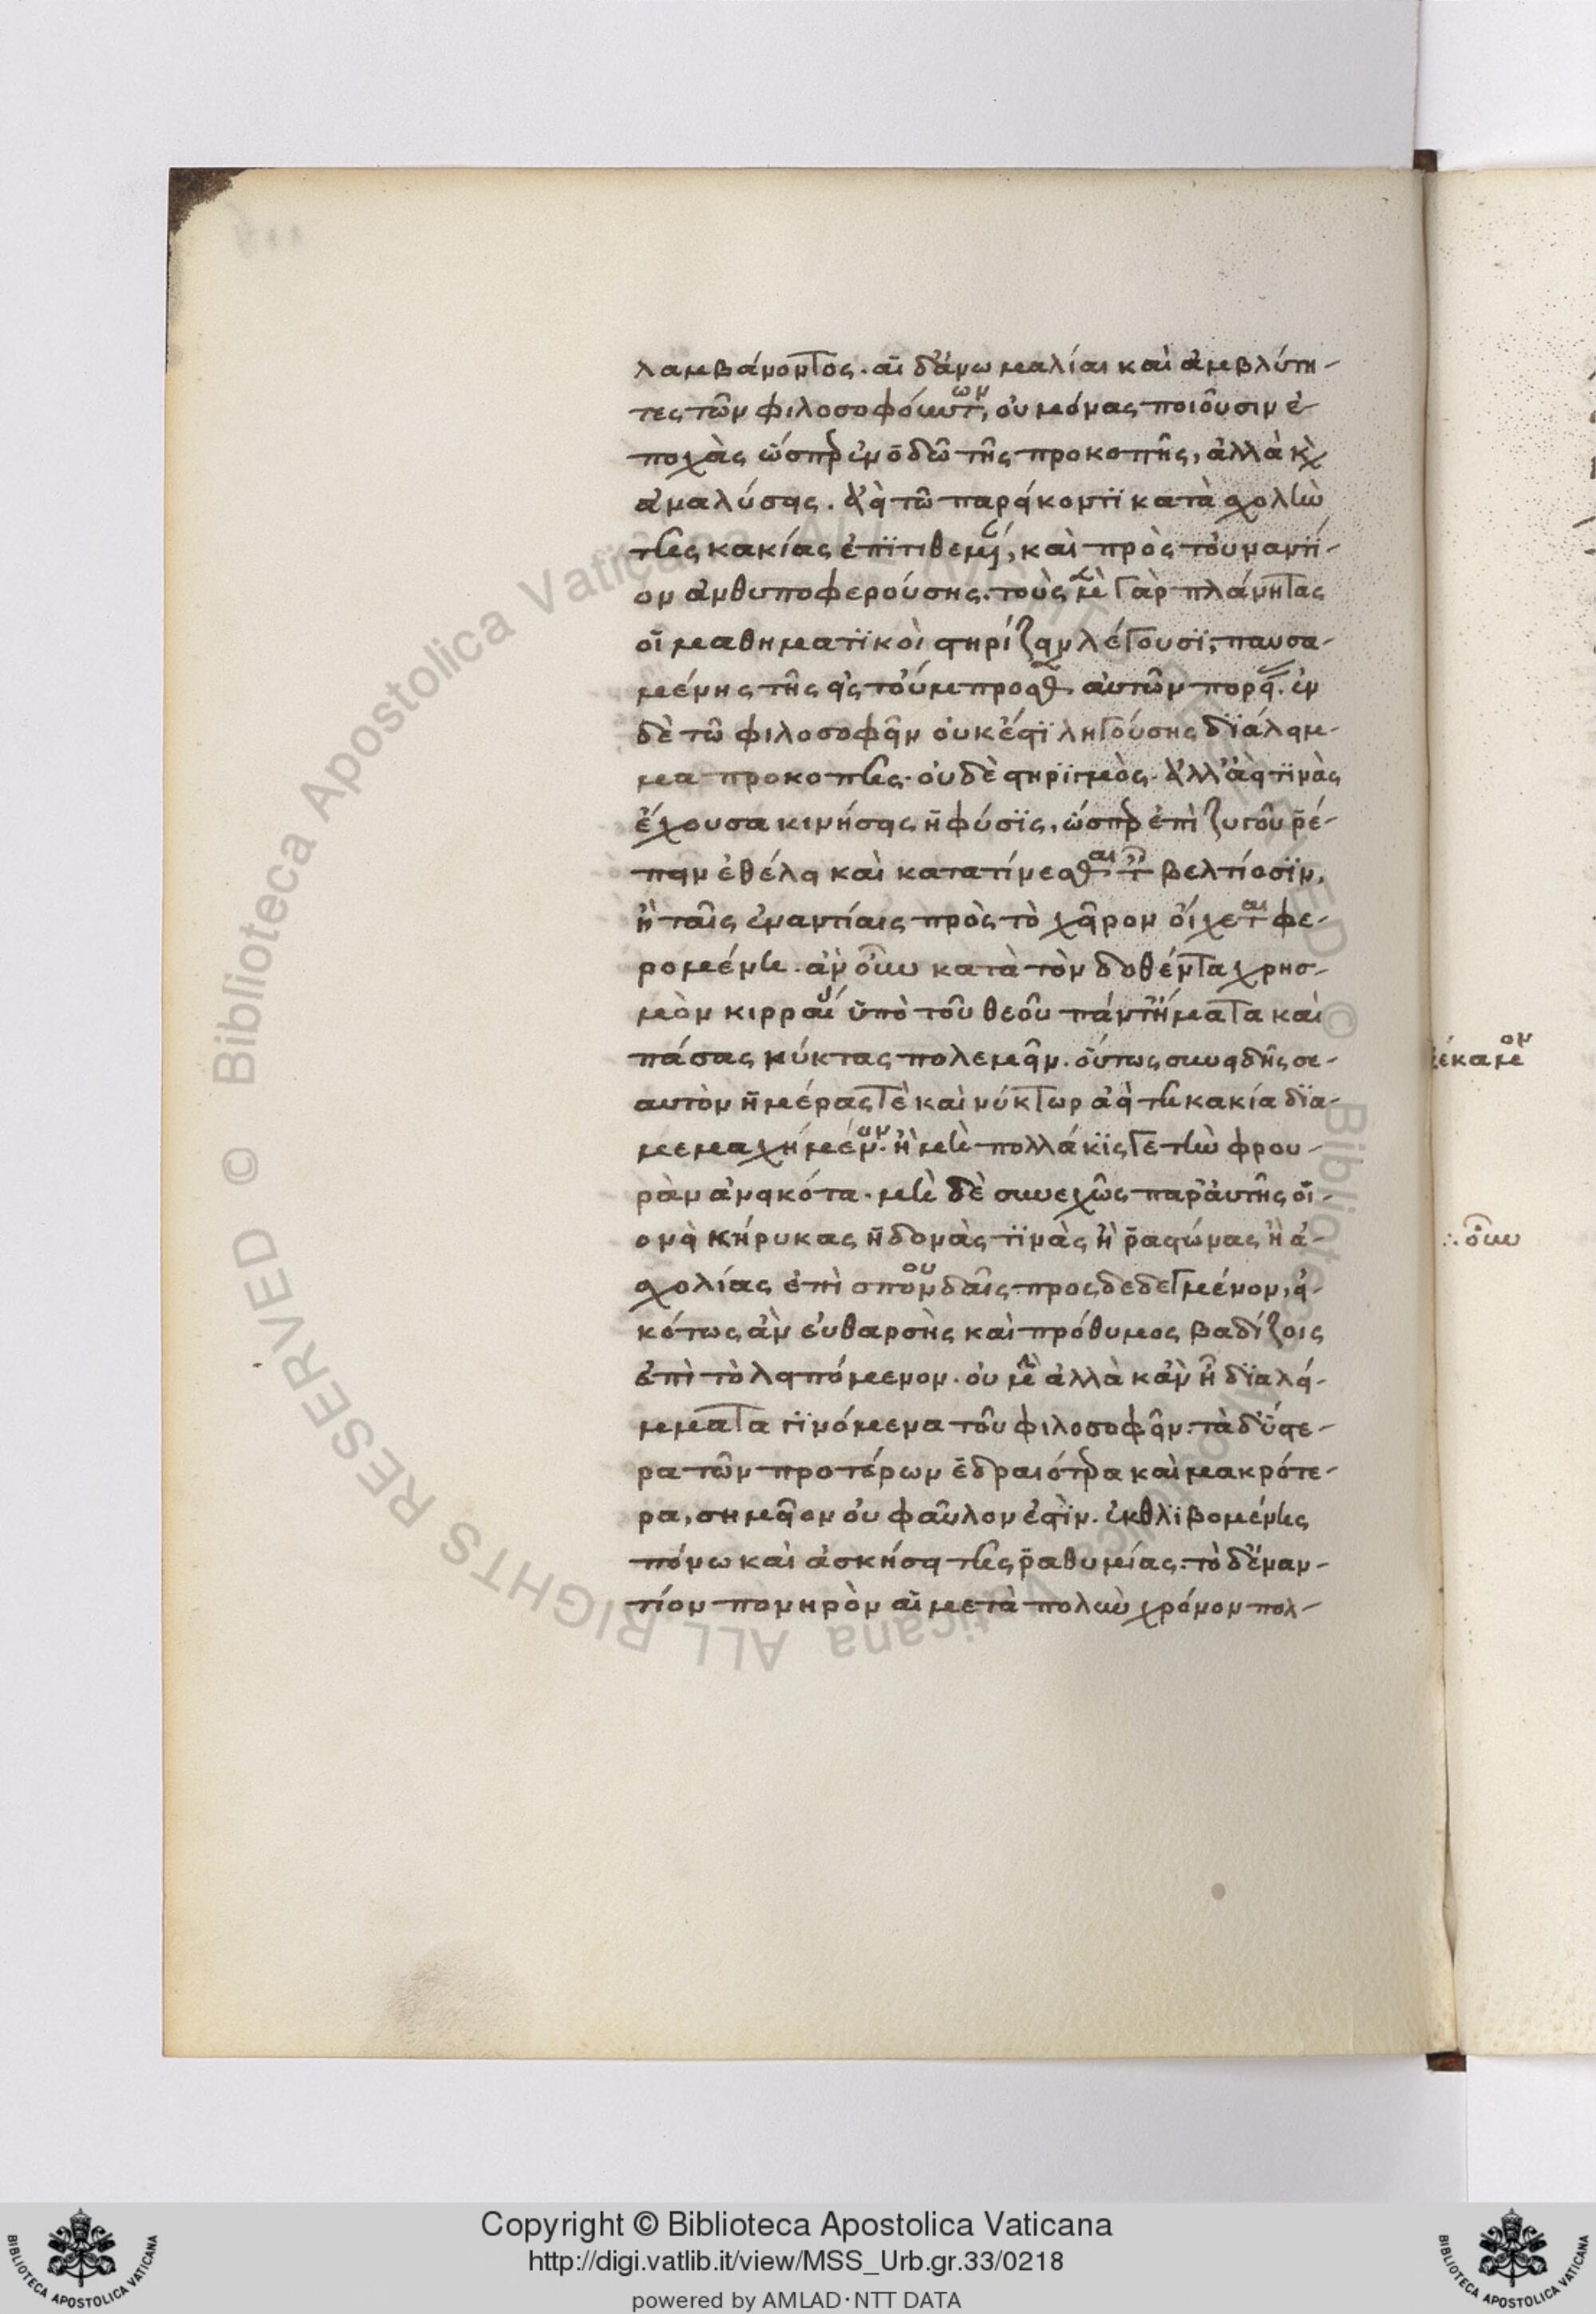 λαμβάνοντος. αἱ δ᾽ἀνωμαλίαι καὶ ἀμβλύτη-
τες τῶν φιλοσοφούντων, οὐ μόνας ποιοῦσιν ἐ-
ποχὰς ὥσπερ ἐν ὁδῶ τῆς προκοπῆς, ἀλλὰ κ̀
ἀναλύσεις. ἀεὶ τῶ παρείκοντι κατὰ σχολὴν
τῆς κακίας ἐπιτιθεμένης, καὶ πρὸς τοὐναντί-
ον ἀνθυποφερούσης. τοὺς μὲν γὰρ πλάνητας
οἱ μαθηματικοὶ στηρίζειν λέγουσι, παυσα-
μένης τῆς εἰς τοὔμπροσθεν αὐτῶν πορείας. ἐν
δὲ τῶ φιλοσοφεῖν οὐκ ἔστι ληγούσης διάλειμ-
μα προκοπῆς. οὐδὲ στηριγμὸς. ἀλλ᾽ ἀεὶ τινὰς
ἔχουσα κινήσεις ἡ φύσις, ὥσπερ ἐπὶ ζυγοῦ ῥέ-
πειν ἐθέλει καὶ κατατίνεσθαι τ βελτίοσιν,
ἢ ταῖς ἐναντίαις πρὸς τὸ χεῖρον οἴχεται φε-
ρομένη. ἂν οὖν κατὰ τὸν δοθέντα χρησ-
μὸν κιρραί ὑπὸ τοῦ θεοῦ πάντ᾽ἤματα καὶ
πάσας νύκτας πολεμεῖν. οὕτως συνειδῆς σε-
αυτὸν ἡμέρας τὲ καὶ νύκτωρ ἀεὶ τῆ κακία δια-
μεμαχημένον. ἢ μὴ πολλάκις γε τὴν φρου-
ρὰν ἀνεικότα. μὴ δὲ συνεχῶς παρ᾽ αὐτῆς οἱ-
ονεὶ κήρυκας ἡδονὰς τινὰς ἢ ῥαστώνας ἢ ἀ-
σχολίας ἐπὶ σπονδαῖς προςδεδεγμένον, εἰ-
κότως ἂν εὐθαρσὴς καὶ πρόθυμος βαδίζοις
ἐπὶ τὸ λειπόμενον. οὐ μὴν ἀλλὰ κἂν ἦ διαλεί-
μματα γινόμενα τοῦ φιλοσοφεῖν. τὰ δ᾽ὕστε-
ρα τῶν προτέρων ἑδραιότερα καὶ μακρότε-
ρα, σημεῖον οὐ φαῦλον ἐστὶν. ἐκθλιβομένης
πόνω καὶ ἀσκήσει τῆς ῥαθυμίας. τὸ δ᾽ἐναν-
τίον πονηρὸν αἱ μετὰ πολὺν χρόνον πολ-
∴ οὖν
Copyright © Biblioteca Apostolica Vaticana
http://digi.vatlib.it/view/MSS_Urb.gr.33/0218
powered by AMLAD·NTT DATA